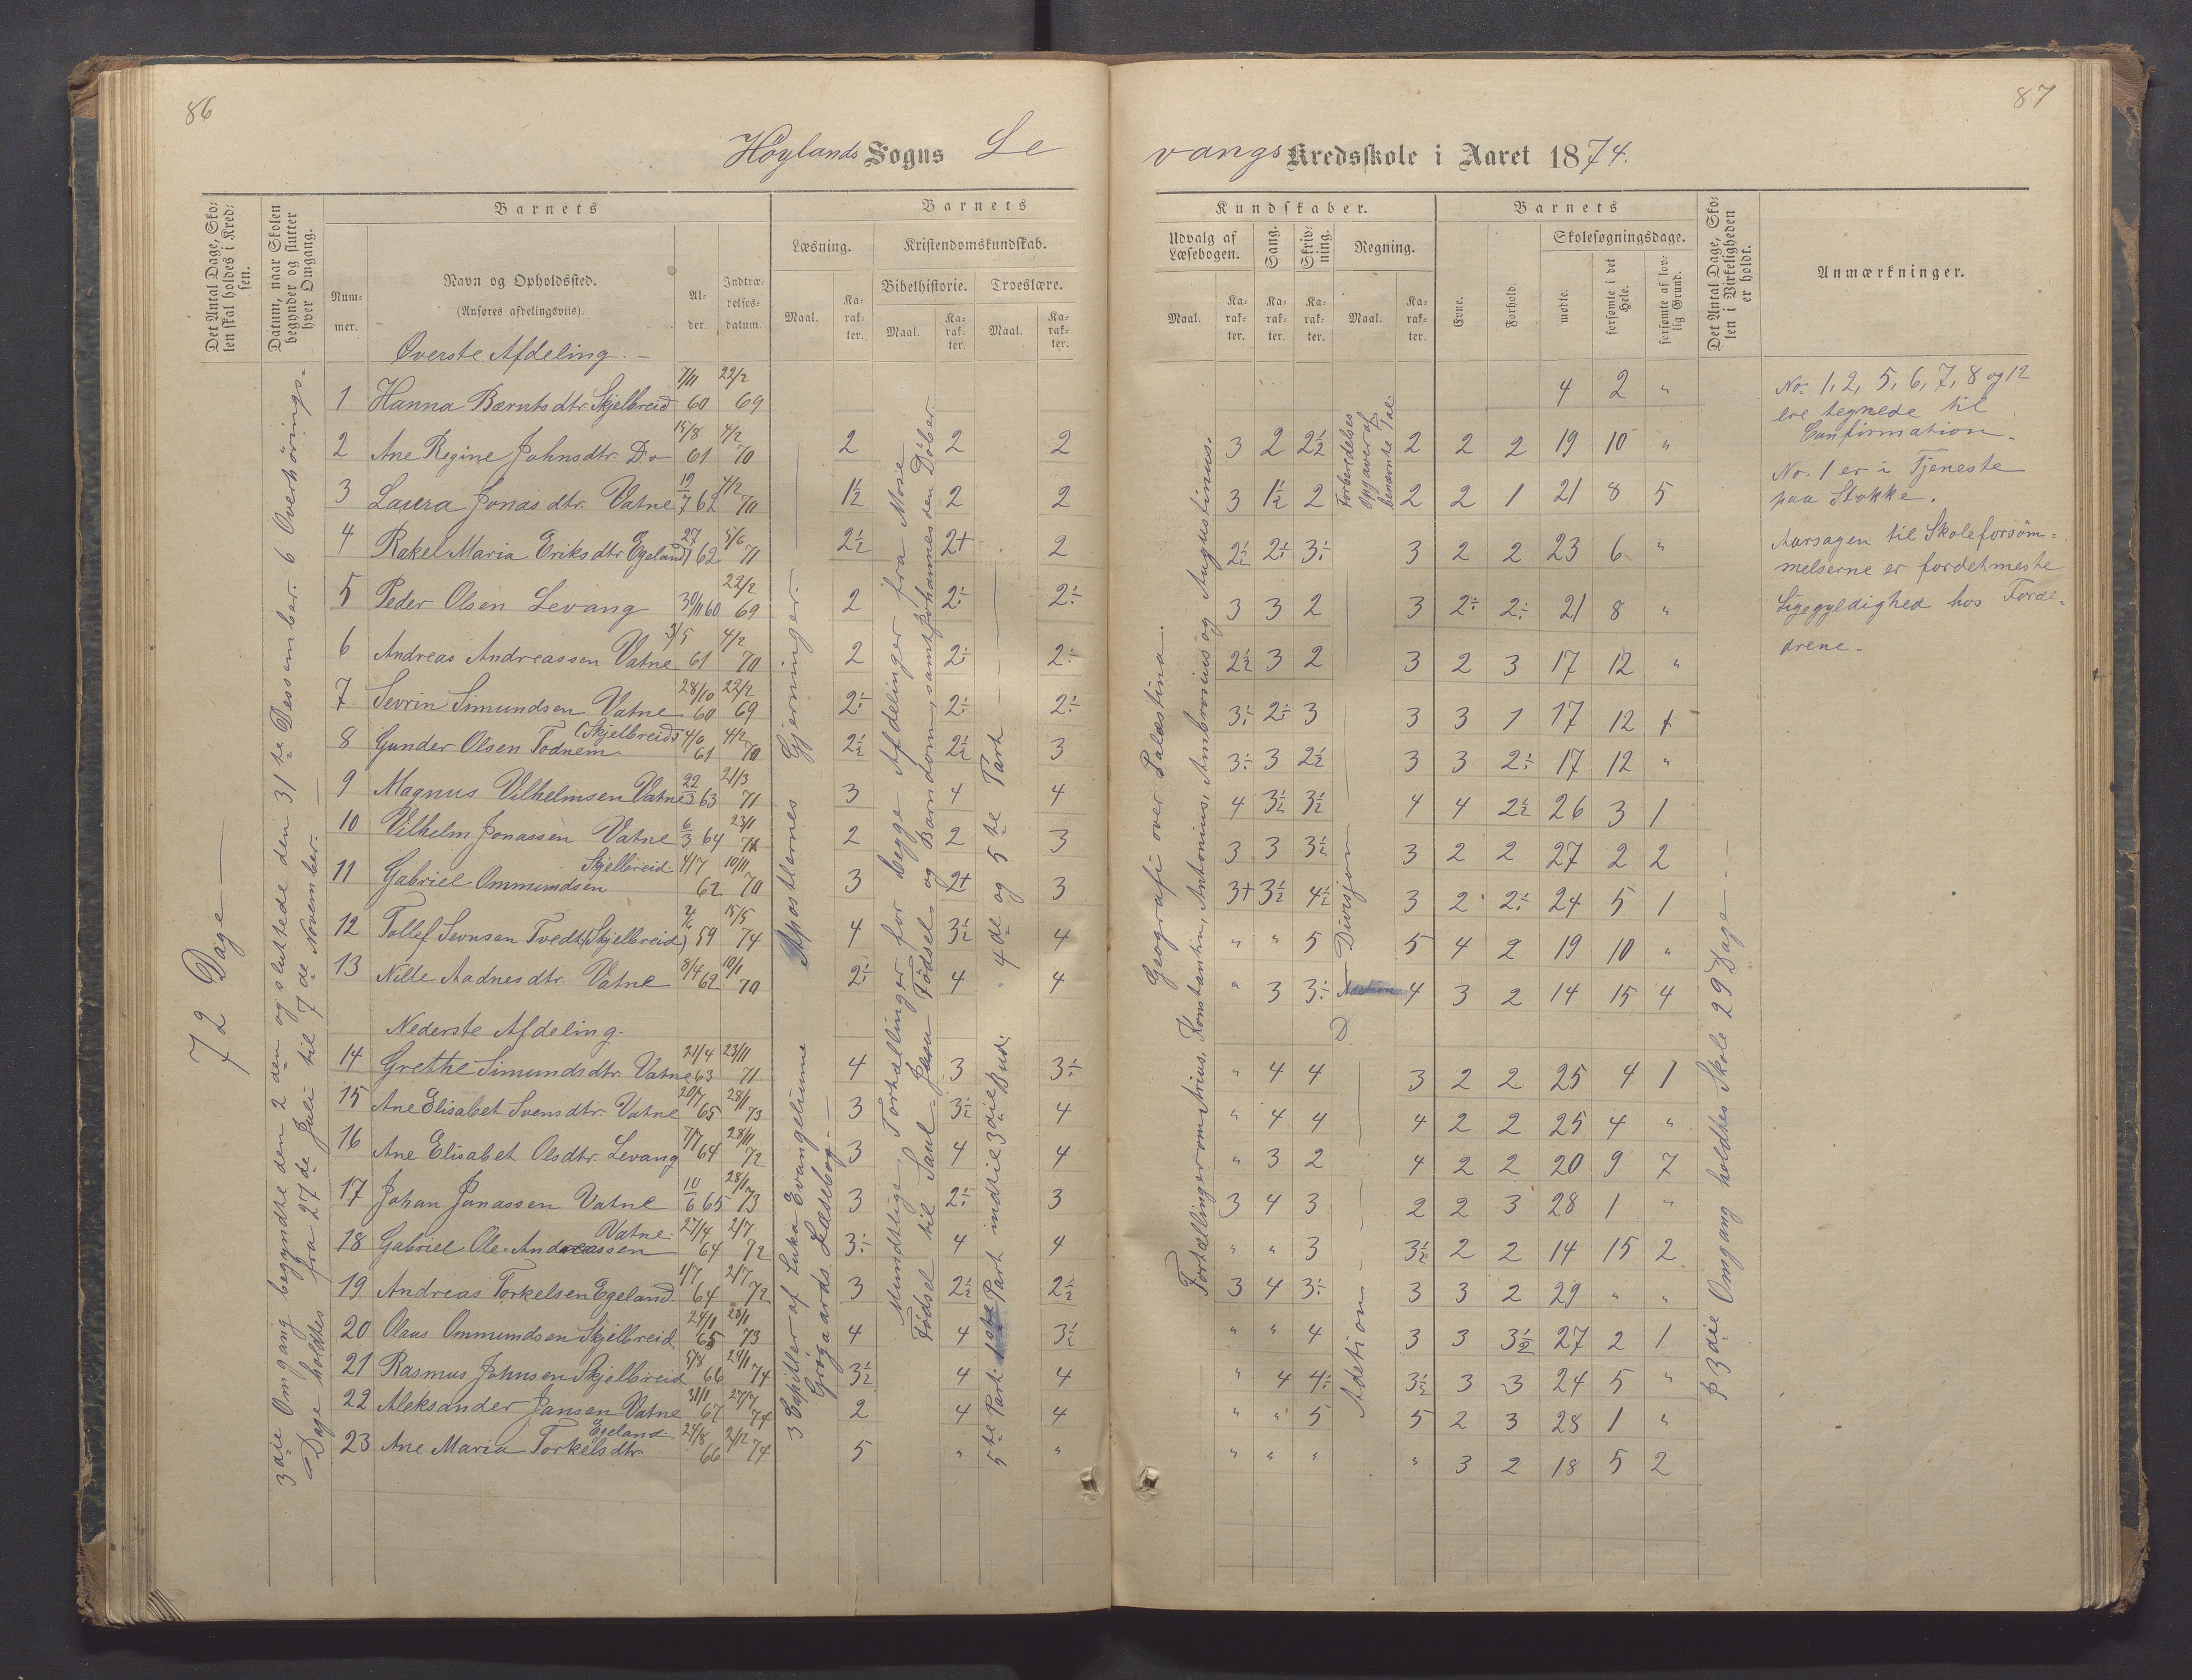 86
87
Höylands Sogns Le
vangs Kredsskole i Aaret 1874.
Det Antal Dage, Sko-
len skal holdes i Kred-
sen.
Datum, naar Skolen
begynder og slutter
hver Omgang.
Barnets
Num-
mer.
Navn og Opholdssted.
(Anføres afdelingsviis).
Al-
der.
Indtræ-
delses-
datum.
Barnets
Læsning.
Kristendomskundskab.
Bibelhistorie. Troeslære.
Maal. Ka-rak-ter. Maal. Ka-rak-ter. Maal. Ka-rak-ter.
Kundskaber.
Udvalg af
Læsebogen.
Sang.
Skriv-
ning.
Regning.
Maal. Ka-rak-ter. Ka-rak-ter. Ka-rak-ter. Maal. Ka-rak-ter.
Barnets
Evne.
Forhold.
Skolesøgningsdage.
mødte.
forsømte i det
Hele.
forsømte af lov-
lig Grund.
Det Antal Dage, Sko-
len i Virkeligheden
er holdt.
Anmærkninger.
72 Dage
3die Omgang begyndte den 2den og sluttede den 31te Dessember. 6 Overhörings-
Dage holdtes fra 27de Juli til 7de November.
Överste Afdeling.
1 Hanna Bærntsdtr. Skjelbreid 7/11 60 22/2 69 4 2 "
2 Ane Regine Johnsdtr. Do 15/8 61 4/2 70 2 2 2 3 2 2½ 2 2 2 19 10 "
3 Laura Jonasdtr. Vatne 19/7 62 4/2 70 1½ 2 2 3 1½ 2 2 2 1 21 8 5
4 Rakel Maria Eriksdtr Egeland 27/1 62 5/6 71 2½ 2+ 2 2½ 2÷ 3÷ 3 2 2 23 6 "
5 Peder Olsen Levang 30/11 60 22/2 69 2 2÷ 2÷ 3 3 2 3 2÷ 2÷ 21 8 "
6 Andreas Andreassen Vatne 3/5 61 4/2 70 2 2÷ 2÷ 2½ 3 2 3 2 3 17 12 "
7 Sevrin Simundsen Vatne 28/10 60 22/2 69 2÷ 2÷ 2÷ 3÷ 2÷ 3 3 3 1 17 12 1
8 Gunder Olsen Todnem (Skjelbreid) 4/6 61 4/2 70 2½ 2½ 3 3÷ 3 2½ 3 3 2÷ 17 12 "
9 Magnus Vilhelmsen Vatne 22/3 63 21/3 71 3 4 4 4 3½ 3½ 4 4 2½ 26 3 1
10 Vilhelm Jonassen Vatne 6/3 64 23/1 71 2 2 3 3 3 3½ 3 2 2 27 2 2
11 Gabriel Ommundsen Skjelbreid 4/7 62 10/11 70 3 2+ 3 3+ 3½ 4½ 3 2 2÷ 24 5 1
12 Tollef Svensen Tvedt (Skjelbreid) 59 15/5 74 4 3½ 4 " " 5 5 4 2 19 10 "
13 Nille Aadnesdtr. Vatne 8/4 62 10/1 70 2÷ 4 4 " 3 3÷ 4 3 2 14 15 4
Nederste Afdeling.
14 Grethe Simundsdtr. Vatne 21/4 63 23/11 71 4 3 3÷ " 4 4 3 2 2 25 4 1
15 Ane Elisabet Svensdtr. Vatne 20/7 65 28/1 73 3 3½ 4 " 4 4 4 2 2 25 4 "
16 Ane Elisabet Olsdtr. Levang 7/7 64 28/11 72 3 4 4 " 3 2 4 2 2 20 9 7
17 Johan Jonassen Vatne 10/6 65 28/1 73 3 2÷ 3 3 4 3 2 2 3 28 1 "
18 Gabriel Ole Andreassen Vatne 27/4 64 2/7 72 3÷ 4 4 " " 3 3½ 2 2 14 15 2
19 Andreas Torkelsen Egeland 1/7 64 2/7 72 3 2½ 2½ 3 4 3÷ 3 3 2 29 " "
20 Olaus Ommundsen Skjelbreid 24/1 65 28/1 73 4 4 3½ " " 4 3 3 3½ 27 2 1
21 Rasmus Johnsen Skjelbreid 5/8 66 29/1 74 3½ 4 4 " 4 4÷ 3½ 3 3 24 5 "
22 Aleksander Jansen Vatne 31/1 67 27/7 74 2 4 4 " " 5 5 2 3 28 1 "
23 Ane Maria Torkelsdtr. Egeland 24/8 66 2/12 74 5 " " " " " " 3 2 18 5 2
3 Capitler af Luka Evangeliume Apostlernes Gjerninger.
Grøgaards Læsebog.
Mundtlige Fortællinger for begge Afdelinger fra Mose
Födsel til Saul. Jesu Födsel og Barndom, samt Johannes den Döber
5te Part Part indtil 3die Bud. 4de og 5te Part
Geografi over Palæstina.
Fortællinger om Arius, Konstantin, Antonius, Ambrosius og Augustinus.
Forberedelses
Opgaver af
benævnte Tal.
Divisjon
Adetion
p 3die Omgang holdtes Skole 29 Dage
No. 1, 2, 5, 6, 7, 8 og 12
ere tegnede til
Confirmation.
No. 1 er i Tjeneste
paa Stokke.
Aarsagen til Skoleforsöm-
melserne er fordetmeste
Ligegyldighed hos Foræl-
drene.